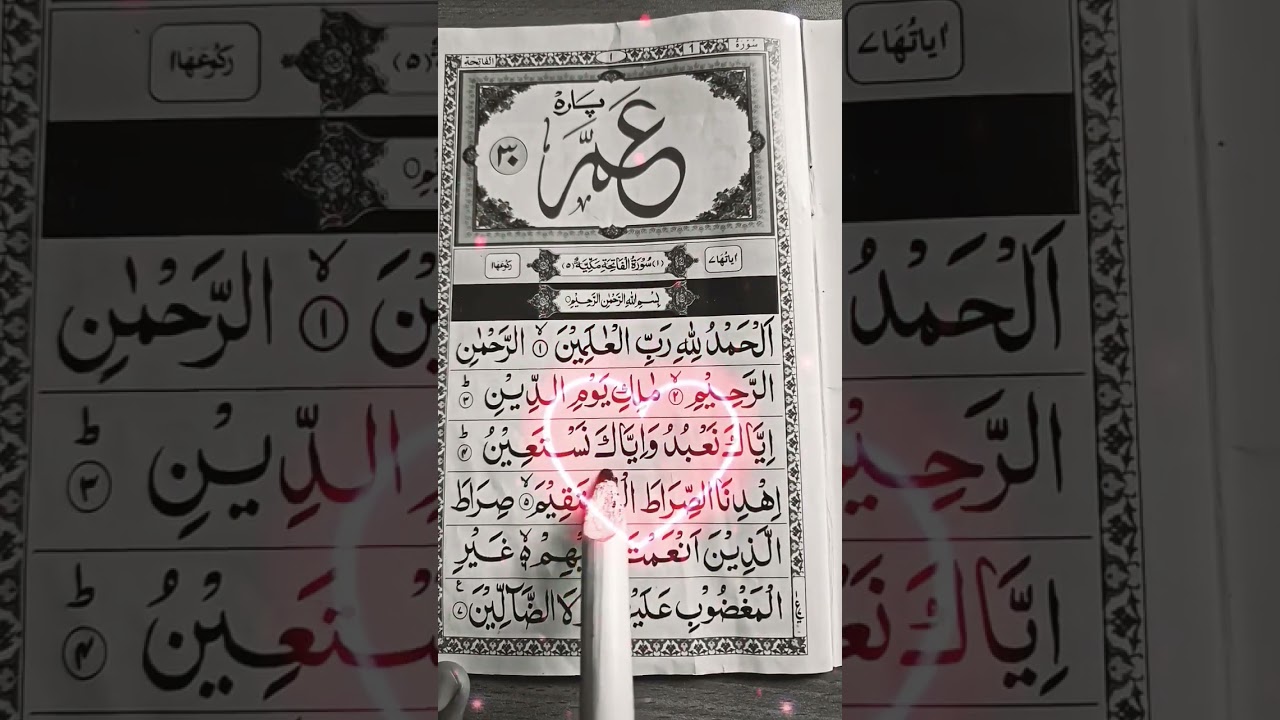 سُوْرَةُ ١ ١ الفاتحة
پاره
عَمَّ ٣٠
اٰیاتُهَا ٧ (١) سُوْرَةُ الْفَاتِحَةِ مَكِّيَّةٌ (٥) رُكُوْعُهَا ١
بِسْمِ اللهِ الرَّحْمٰنِ الرَّحِيْمِ
اَلْحَمْدُ لِلّٰهِ رَبِّ الْعٰلَمِيْنَ ۙ ١ الرَّحْمٰنِ
الرَّحِيْمِ ۙ ٢ مٰلِكِ يَوْمِ الدِّيْنِ ؕ ٣
اِيَّاكَ نَعْبُدُ وَاِيَّاكَ نَسْتَعِيْنُ ؕ ٤
اِهْدِنَا الصِّرَاطَ ۙ ٥ صِرَاطَ
الَّذِيْنَ اَنْعَمْتَ ۙ ٦ غَيْرِ
الْمَغْضُوْبِ الضَّآلِّيْنَ ٧